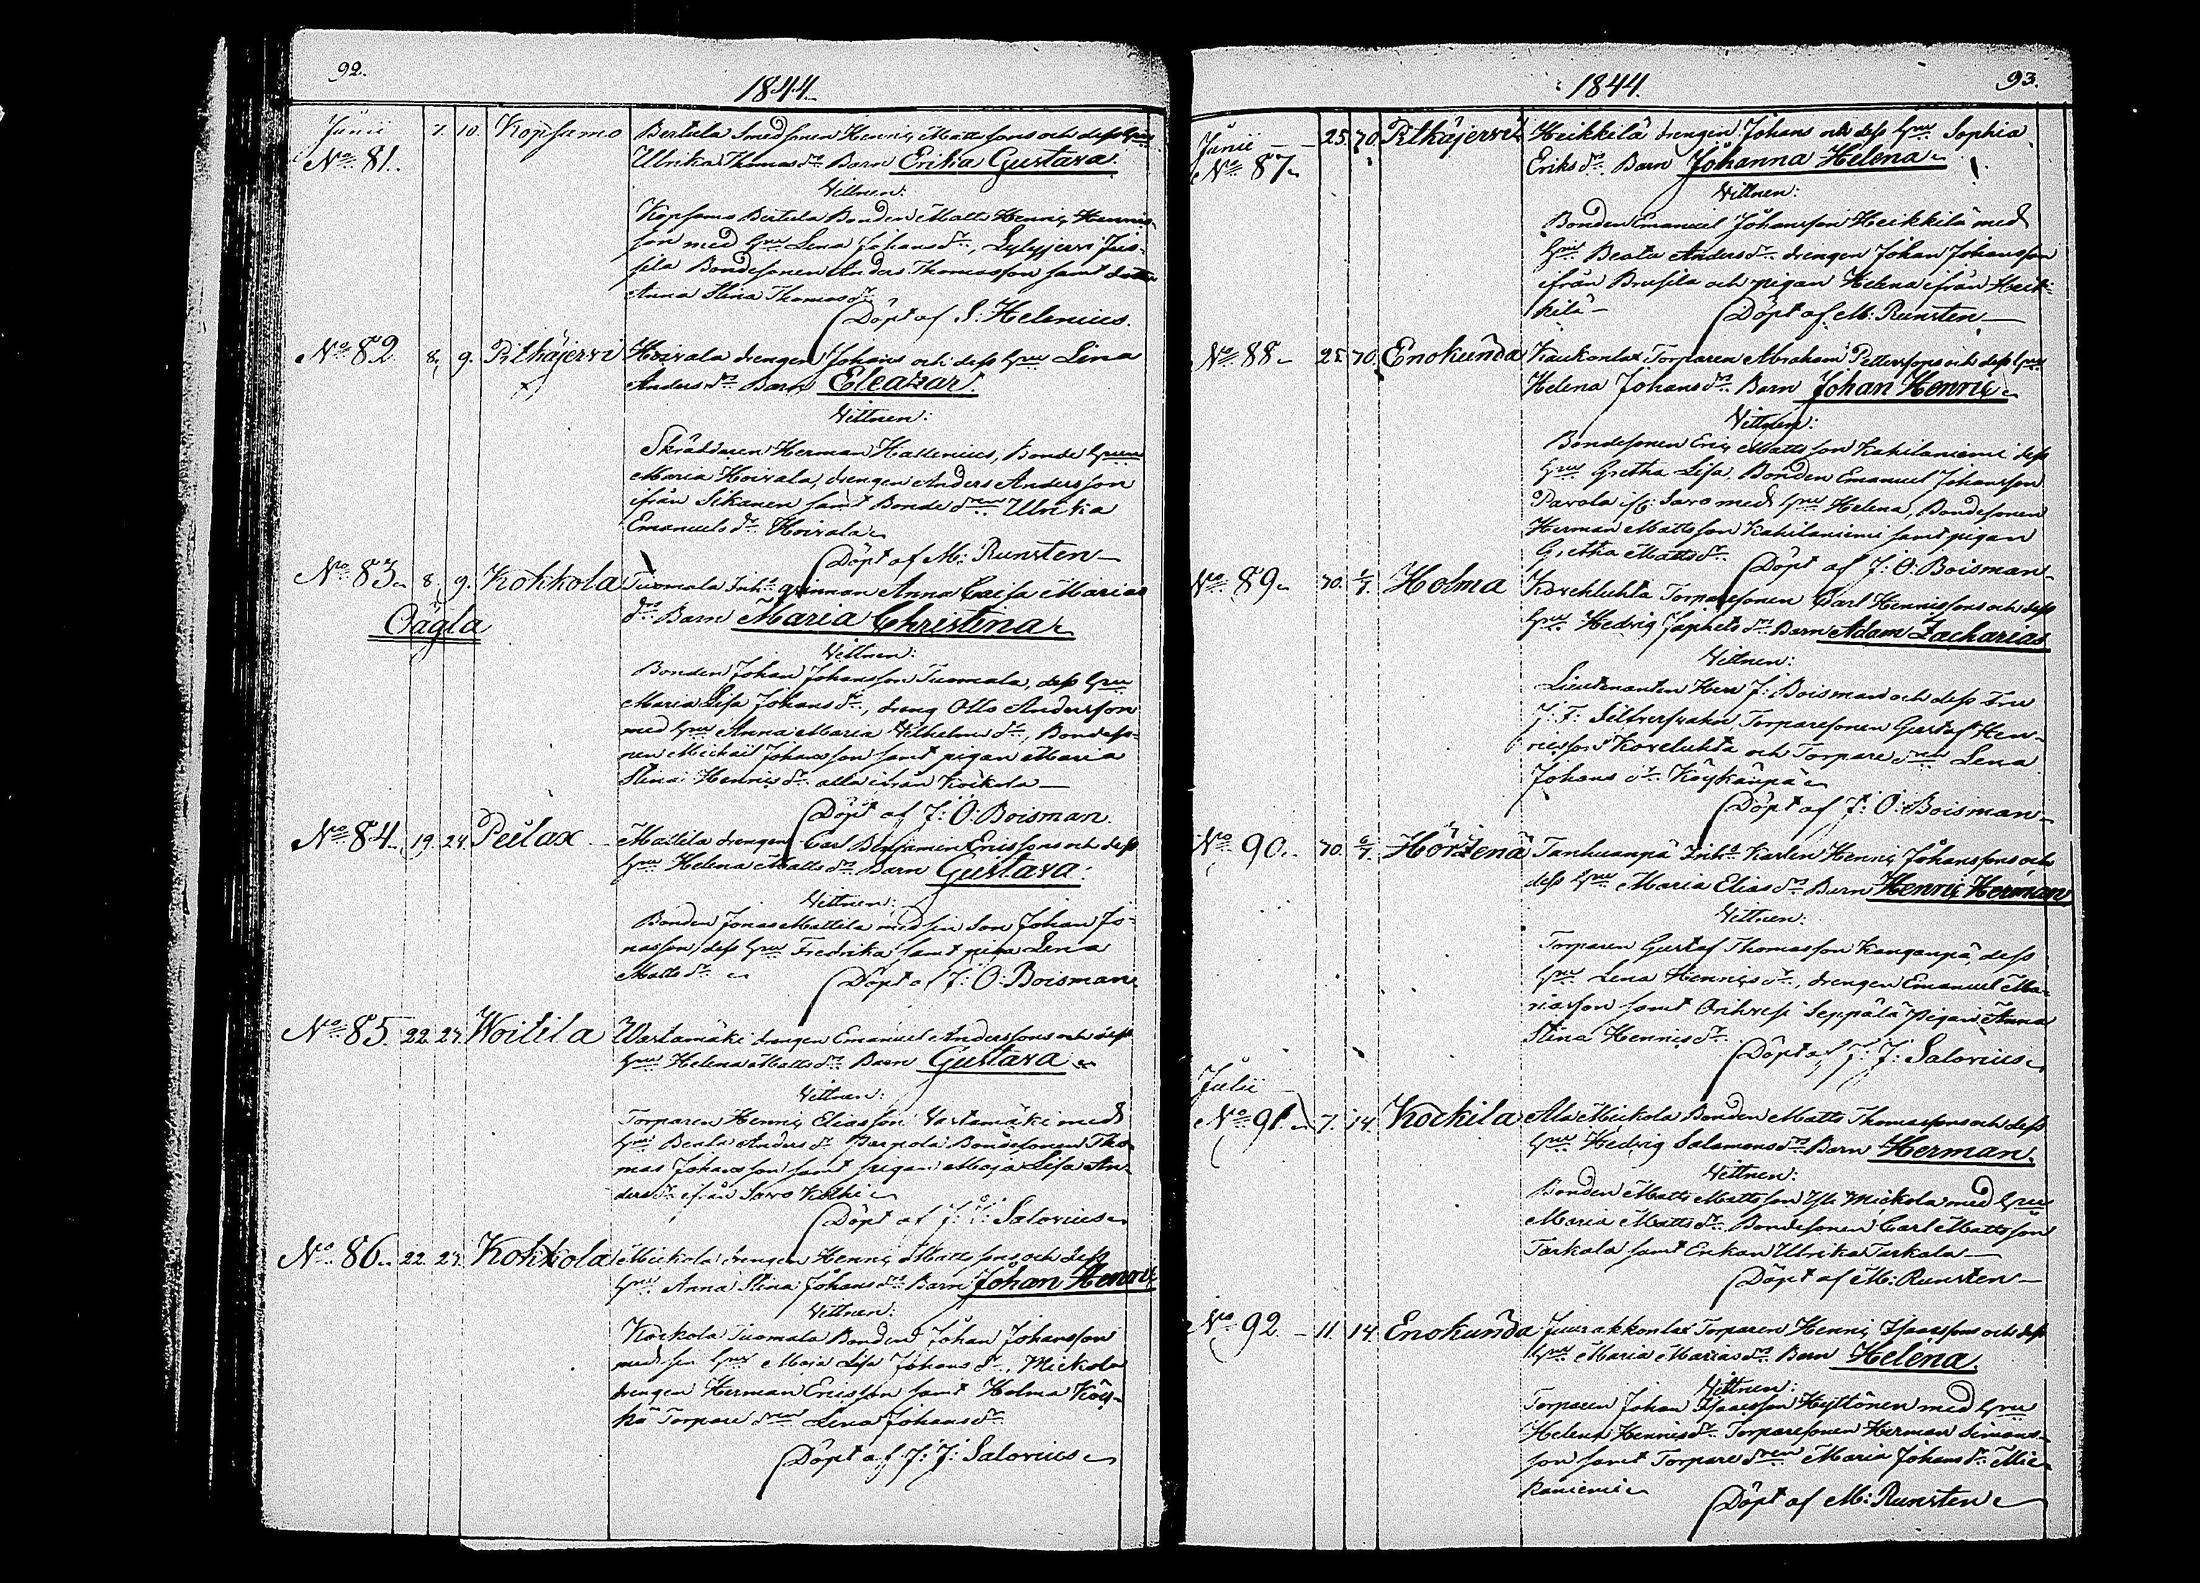 92.
1844.
Junii 7. 10. Kopsamo Bertula Smedsonen Henric Mattssons och dess Hru
No 81. Ulrika Thomas dr Barn Erika Gustava.
Vittnen:
Kopsamo Bertula Bonden Matts Henric Henrics-
son med Hru Lena Johans dr, Lylyjervi Jus-
sila Bondesonen Anders Thomasson samt
Anna Stina Thomas dr
Döpt af S: Helenius.
No 82 8. 9. Pitkäjervi Hoivala drengen Johans och dess Hru Lena
Anders dr Barn Eleazar.
Vittnen:
Skräddaren Herman Hallenius, Bonde Hrun
Maria Hoivala, drengen Anders Andersson
ifrån Sikanen samt Bonde dren Ulrika
Emanuels dr Hoivala
Döpt af M: Runsten
No 83 8. 9. Kokkola Tuomala Inh: qvinnan Anna Caisa Marias
Oägta dr Barn Maria Christina
Vittnen:
Bonden Johan Johansson Tuomala, dess Hru
Maria Lisa Johans dr, dreng Otto Andersson
med Hru Anna Maria Vilhelms dr, Bondeso-
nen Michäil Johansson samt pigan Maria
Stina Henrics dr alla ifrån Kockola
Döpt af J: O: Boisman.
No 84 19. 24. Peilax Mattila drengen Carl Benjamin Ericssons och dess
Hru Helena Matts dr Barn Gustava.
Vittnen:
Bonden Jonas Mattila med sin Son Johan Jo-
nasson, dess Hru Fredrika samt Lena
Matts dr
Döpt af J: O: Boisman
No 85. 22. 24. Woitila Wartamäki drengen Emanuel Anderssons och dess
Hru Helena Matts dr Barn Gustava
Vittnen:
Torparen Henric Eliasson Vartamäki med
Hru Beata Anders dr Bondesonen Tho-
mas Johansson samt pigan Maja Lisa An-
ders dr ifrån Savo
Döpt af J: J: Salovius
No 86. 22. 24. Kokkola Mickola drengen Henric Mattssons och dess
Hru Anna Stina Johans dr Barn Johan Henric
Vittnen:
Kockola Tuomala Bonden Johan Johansson
med sin Hru Maja Lisa Johans dr, Mickola
drengen Herman Ericsson samt Holma Köy-
kä Torpare dren Lena Johans dr
Döpt af J: J: Salovius
1844. 93.
Junii 25. 30. Pitkäjervi Heikkilä drengen Johans och dess Hru Sophia
No 87 Eriks dr Barn Johanna Helena
Vittnen:
Bonden Emanuel Johansson Heikkilä med
Hru Beata Anders dr drengen Johan Johansson
ifrån Brusila och pigan Helena ifrån Heik-
kilä
Döpt af M: Runsten
No 88 25. 30. Enokunda Kaukonlax Torparen Abraham Petterssons och dess Hru
Helena Johans dr Barn Johan Henric
Vittnen:
Bondesonen Eric Mattsson Kahilaniemi dess
Hru Gretha Lisa, Bonden Emanuel Johansson
Pavola med Hru Helena, Bondesonen
Herman Mattsson Kahilaniemi samt pigan
Gretha Matts dr
Döpt af J: O: Boisman
No 89 30. 6/7. Holma Torparesonen Carl Henricssons och dess
Hru Hedvig Japhets dr Barn Adam Zacharias
Vittnen:
Lieutenanten Herr J: Boisman och dess Fru
J: F: Silfversvahn Torparesonen Gustaf Hen-
ricsson Koveluhta och Torpare dren Lena
Johans dr Köykänpä
Döpt af J: O: Boisman
No 90. 30. 6/7. Hörtzenä Tanhuanpä Inh: Karlen Henric Johanssons och
dess Hru Maria Elias dr Barn Henric Herman
Vittnen:
Torparen Gustaf Thomasson Kanganpä, dess
Hru Lena Henrics dr, drengen Emanuel Ma-
riasson samt Orihvesi Seppälä pigan Anna
Stina Henrics dr
Döpt af J: J: Salovius
Julii
No 91. 7. 14. Kockila Ala Mickola Bonden Matts Thomassons och dess
Hru Hedvig Salomons dr Barn Herman.
Vittnen:
Bonden Matts Mattsson Yli Mickola med Hru
Maria Matts dr Bondesonen Carl Mattsson
Tarkala samt Enkan Ulrika Tarkala
Döpt af M: Runsten
No 92 11. 14. Enokunda Juurakkonlax Torparen Henric Isacssons och dess
Hru Maria Marias dr Barn Helena.
Vittnen:
Torparen Johan Isacsson Hyttönen med Hru
Helena Henrics dr Torparesonen Herman Simons-
son samt Torpare dren Maria Johans dr Mie-
Döpt af M: Runsten